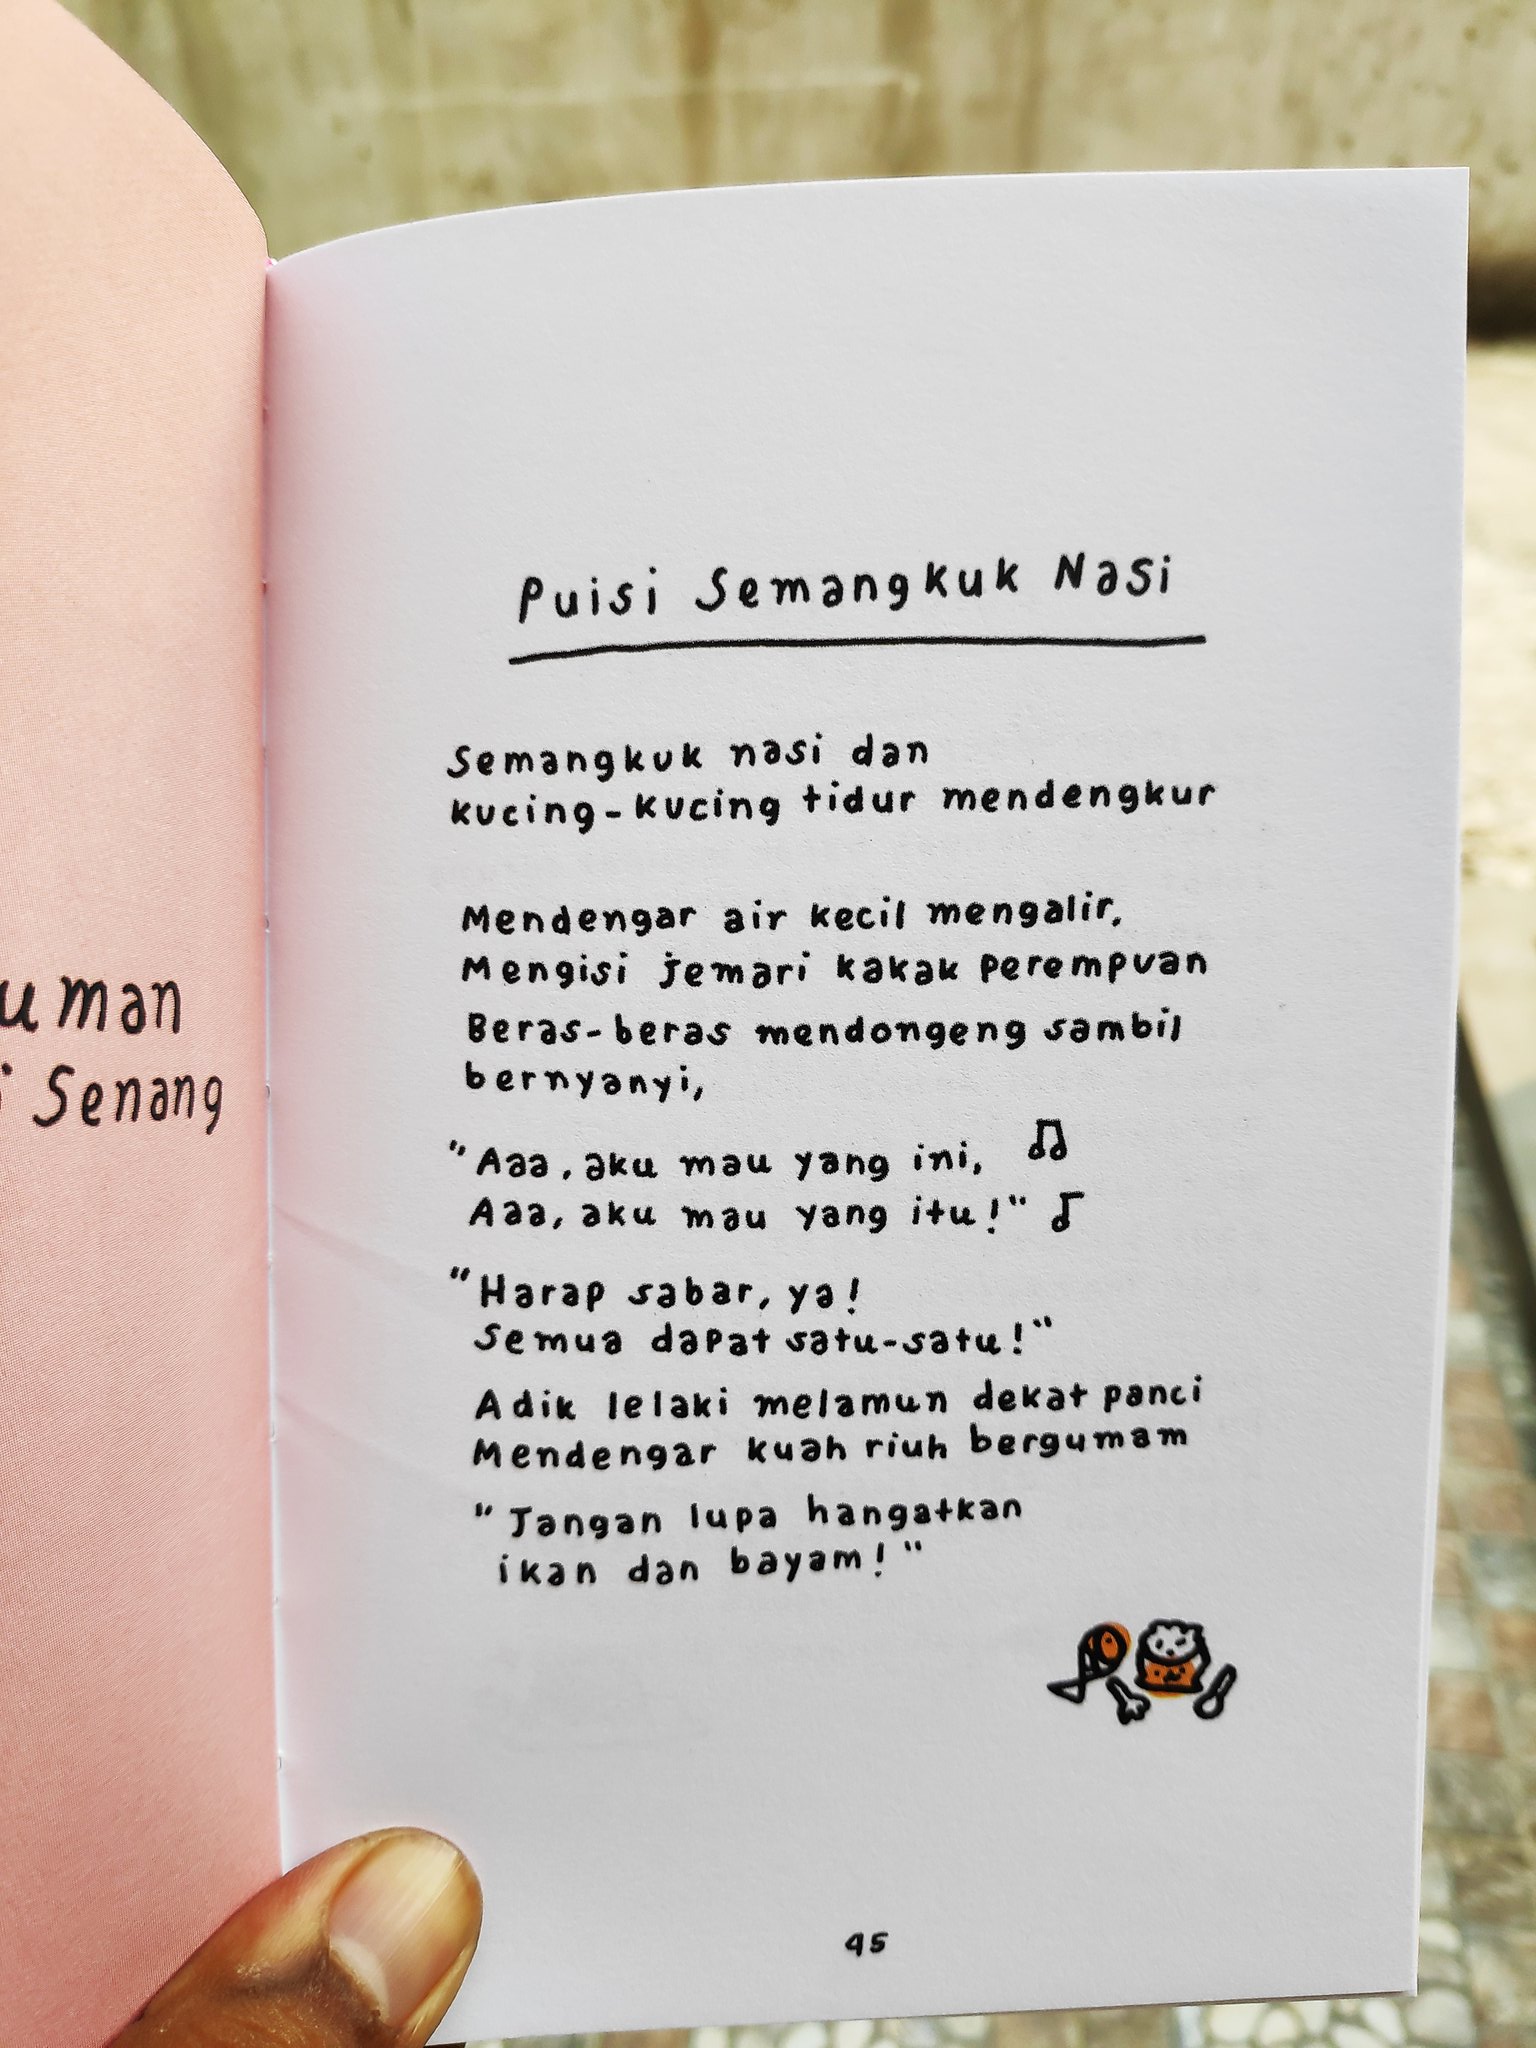 uman
i Senang
Puisi Semangkuk Nasi
Semangkuk nasi dan
kucing-kucing tidur mendengkur
Mendengar air kecil mengalir,
Mengisi jemari kakak perempuan
Beras-beras mendongeng sambil
bernyanyi,
"Aaa, aku mau yang ini,
Aaa, aku mau yang itu!"
"Harap sabar, ya!
Semua dapat satu-satu!"
Adik lelaki melamun dekat panci
Mendengar kuah riuh bergumam
"Jangan lupa hangatkan
ikan dan bayam!"
45